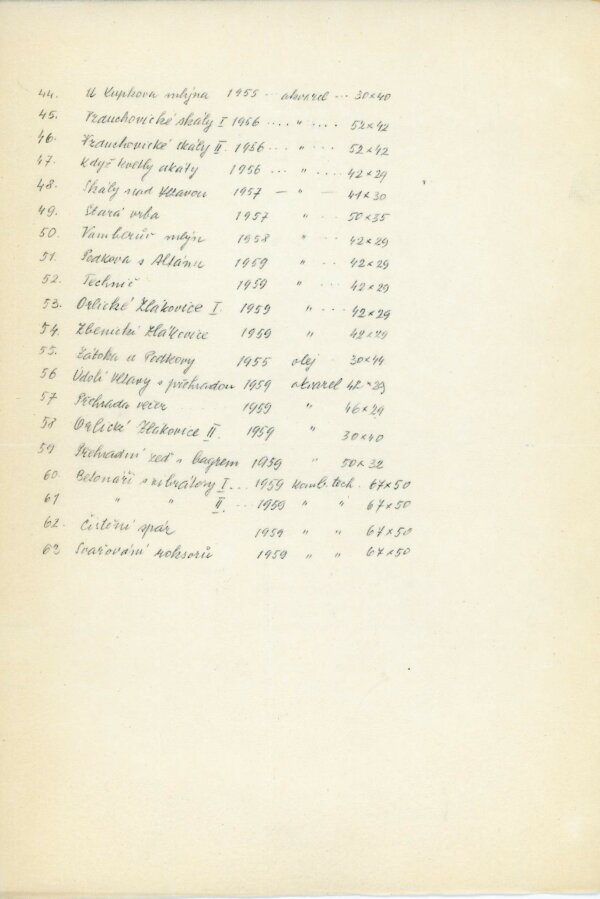 44. U Kupkova mlýna 1955 ... akvarel ... 30×40
45. Vrauchovické skály I 1956 .... " .... 52×42
46. Vrauchovické skály II. 1956 ... " ... 52×42
47. Když kvetly akáty 1956 ... " .... 42×29
48. Skály nad Vltavou 1957 — " — 41×30
49. Stará vrba 1957 " .. 50×35
50. Vamberův mlýn 1958 " .. 42×29
51. Podkova s Altánu 1959 " .. 42×29
52. Technič 1959 " .. 42×29
53. Orlické Zlákovice I. 1959 " .. 42×29
54. Zbenické Zlákovice 1959 " 42×29
55. Zátoka u Podkovy 1955 olej 30×44
56 Údolí Vltavy s přehradou 1959 akvarel 42×29
57 Přehrada večer 1959 " 46×29
58 Orlické Zlákovice II. 1959 " 30×40
59 Přehradní zeď s bagrem 1959 " 50×32
60. Betonáři s vibrátory I... 1959 komb. tech. 67×50
61 " " II. .. 1959 " " 67×50
62. Čištění spár 1959 " " 67×50
63 Svařování roksorů 1959 " " 67×50